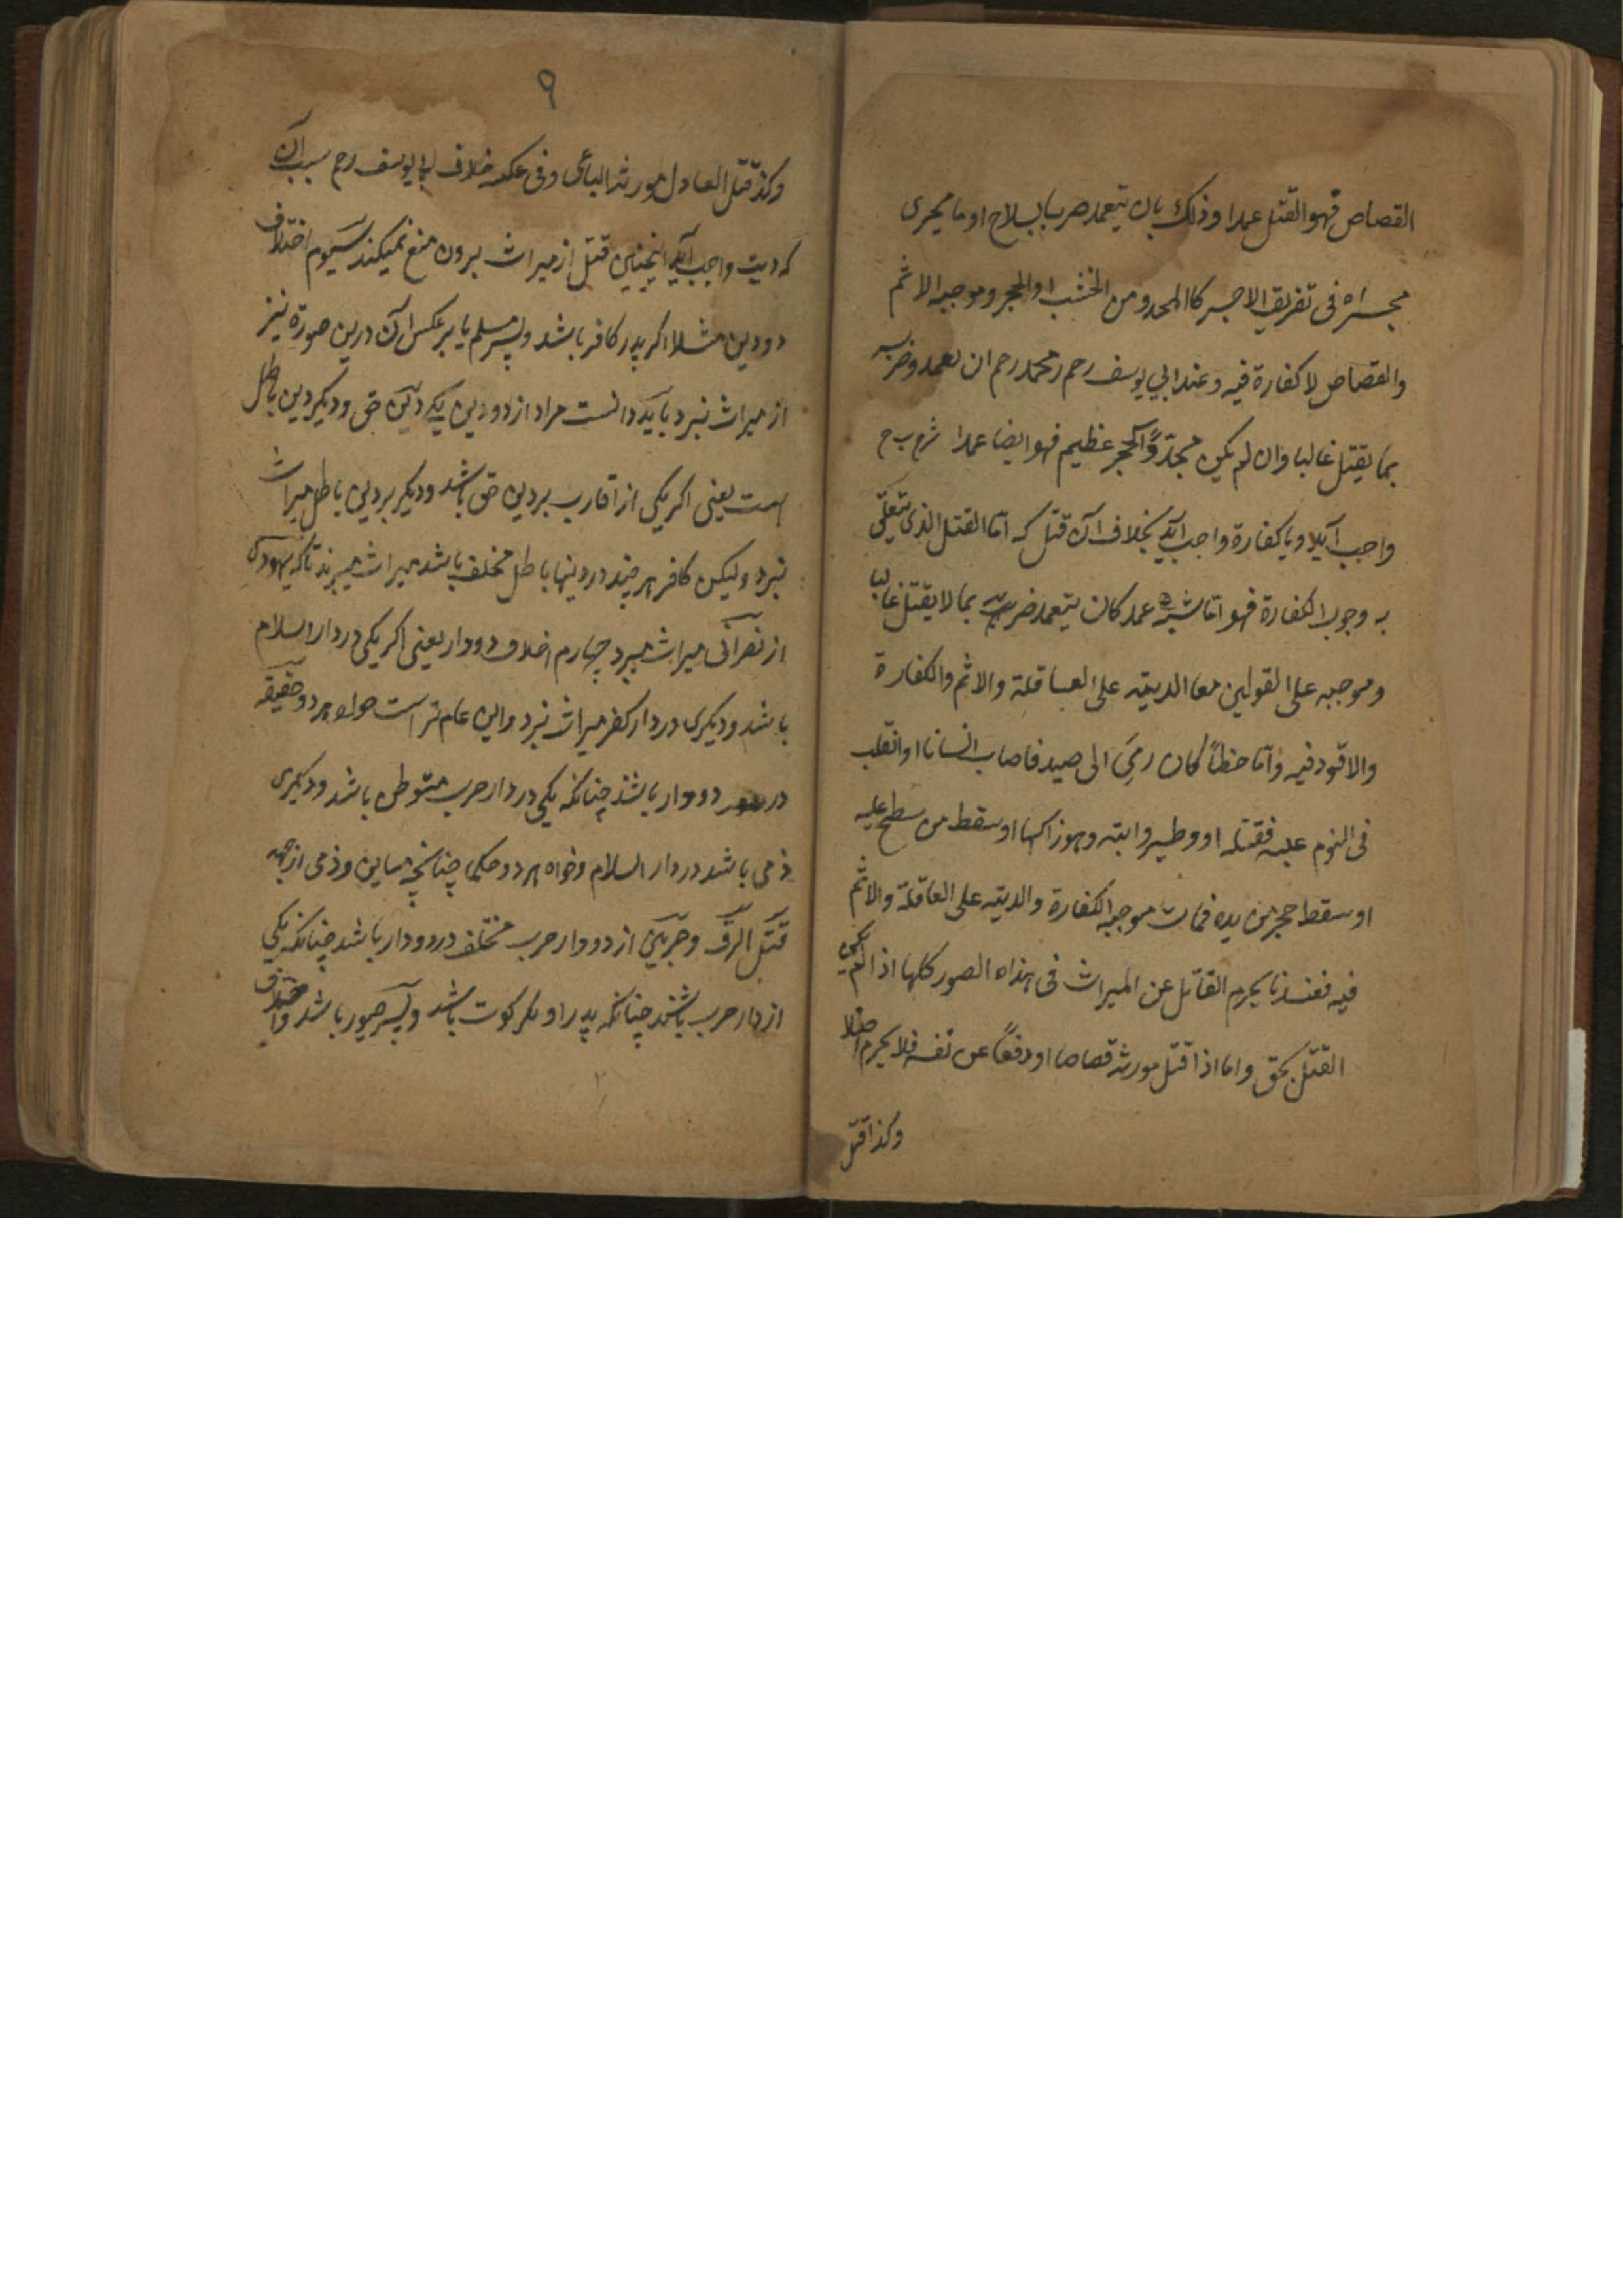 القصاص فهو القتل عمدا وذلك بان يتعمد ضربا بسلاح او ما يجرى
مجراه فى تفريق الاجزاء كالمحدد من الخشب او الحجر وموجبه الاثم
والقصاص لا كفارة فيه وعند ابي يوسف رحم ومحمد رحم ان تعمد وضربه
بما يقتل غالبا وان لم يكن محدّدًا كحجر عظيم فهو ايضا عمدا
واجب آيد ويا كفارة واجب آيد بخلاف آن قتل كه امّا القتل الذى يتعلّق
به وجوب الكفارة فهو امّا شبه عمد كان يتعمد ضربه بما لا يقتل غالبا
وموجبه على القولين معا الدية على العاقلة والاثم والكفارة
والا قود فيه وامّا خطأً كان رمى الى صيد فاصاب انسانا او انقلب
فى النوم عليه فقتله او وطيه دابته وهو راكبها او سقط من سطح عليه
او سقط حجر من يده فمات موجبه الكفارة والدية على العاقلة والاثم
فيه فعندنا يحرم القاتل عن الميراث فى هذاه الصور كلها اذا لم يكن
القتل بحق واما اذا قتل مورثه قصاصا او دفعًا عن نفسه فلا يحرم اصلا
وكذا قتل
٩
وكذا قتل العادل مورثه الباغى وفى عكسه خلاف ابا يوسف رحم بسبب آن
كه ديت واجب آيد اينچنين قتل از ميراث بردن منع نميكند سيوم اختلاف
دو دين مثلا اكر پدر كافر باشد وپسر مسلم يا بر عكس آن درين صورة نيز
از ميراث نبرد بايد دانست مراد از دو دين يكے دين حق وديكر دين باطل
است يعنى اكر يكى از اقارب بر دين حق باشد وديكر بر دين باطل ميراث
نبرد وليكن كافر هر چند در دينها باطل مختلف باشد ميراث ميبرند تاكه يهودى
از نصرانى ميراث ميبرد چهارم اختلاف دو دار يعنى اكر يكى در دار اسلام
باشد وديكرى در دار كفر ميراث نبرد واين عام تر است خواه هر دو حقيقه
در دو دار باشند چنانكه يكى در دار حرب متوطن باشد وديكرى
ذمى باشد در دار السلام وخواه هر دو حكما چنانچه مستامن وذمى از جهه
وحربى از دو دار حرب مختلف در دو دار باشد چنانكه يكى
از دار حرب باشند چنانكه پدر او باشد وپسر باشد واختلاف